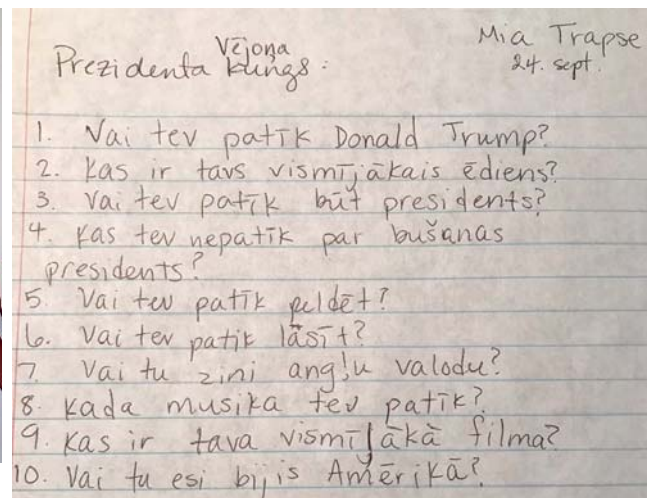 Mia Trapse
24. sept.
Prezidenta Vējoņa kungs:
1. Vai tev patīk Donald Trump?
2. Kas ir tavs vismīļākais ēdiens?
3. Vai tev patīk būt presidents?
4. Kas tev nepatīk par bušanas
presidents?
5. Vai tev patīk peldēt?
6. Vai tev patik lāsīt?
7. Vai tu zini angļu valodu?
8. Kada musika tev patīk?
9. Kas ir tava vismīļākā filma?
10. Vai tu esi bijis Amērikā?